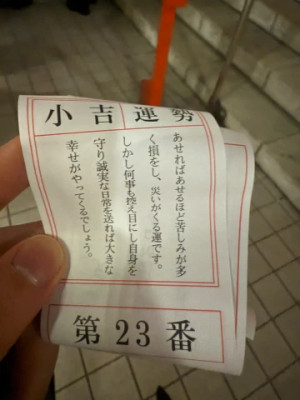 小吉運勢
あせればあせるほど苦しみが多
く損をし、災いがくる運です。
しかし何事も控え目にし自身を
守り誠実な日常を送れば大きな
幸せがやってくるでしょう。
第23番